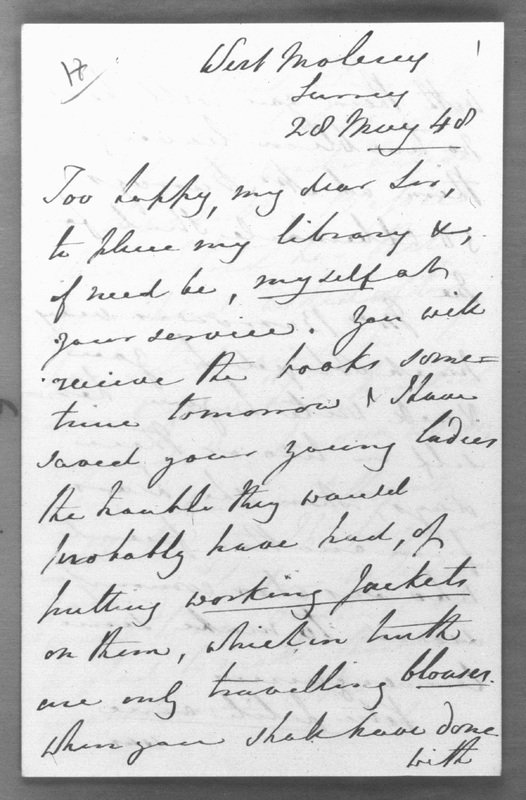 17
1
West Molesey
Surrey
28 May 48
Too happy, my dear Sir,
to place my library &,
if need be, myself at
your service. You will
receive the books some=
time tomorrow & I have
saved your young ladies
the trouble they would
probably have had, of
putting working Jackets
on them, which in truth
are only travelling blouses.
When you shall have done
with